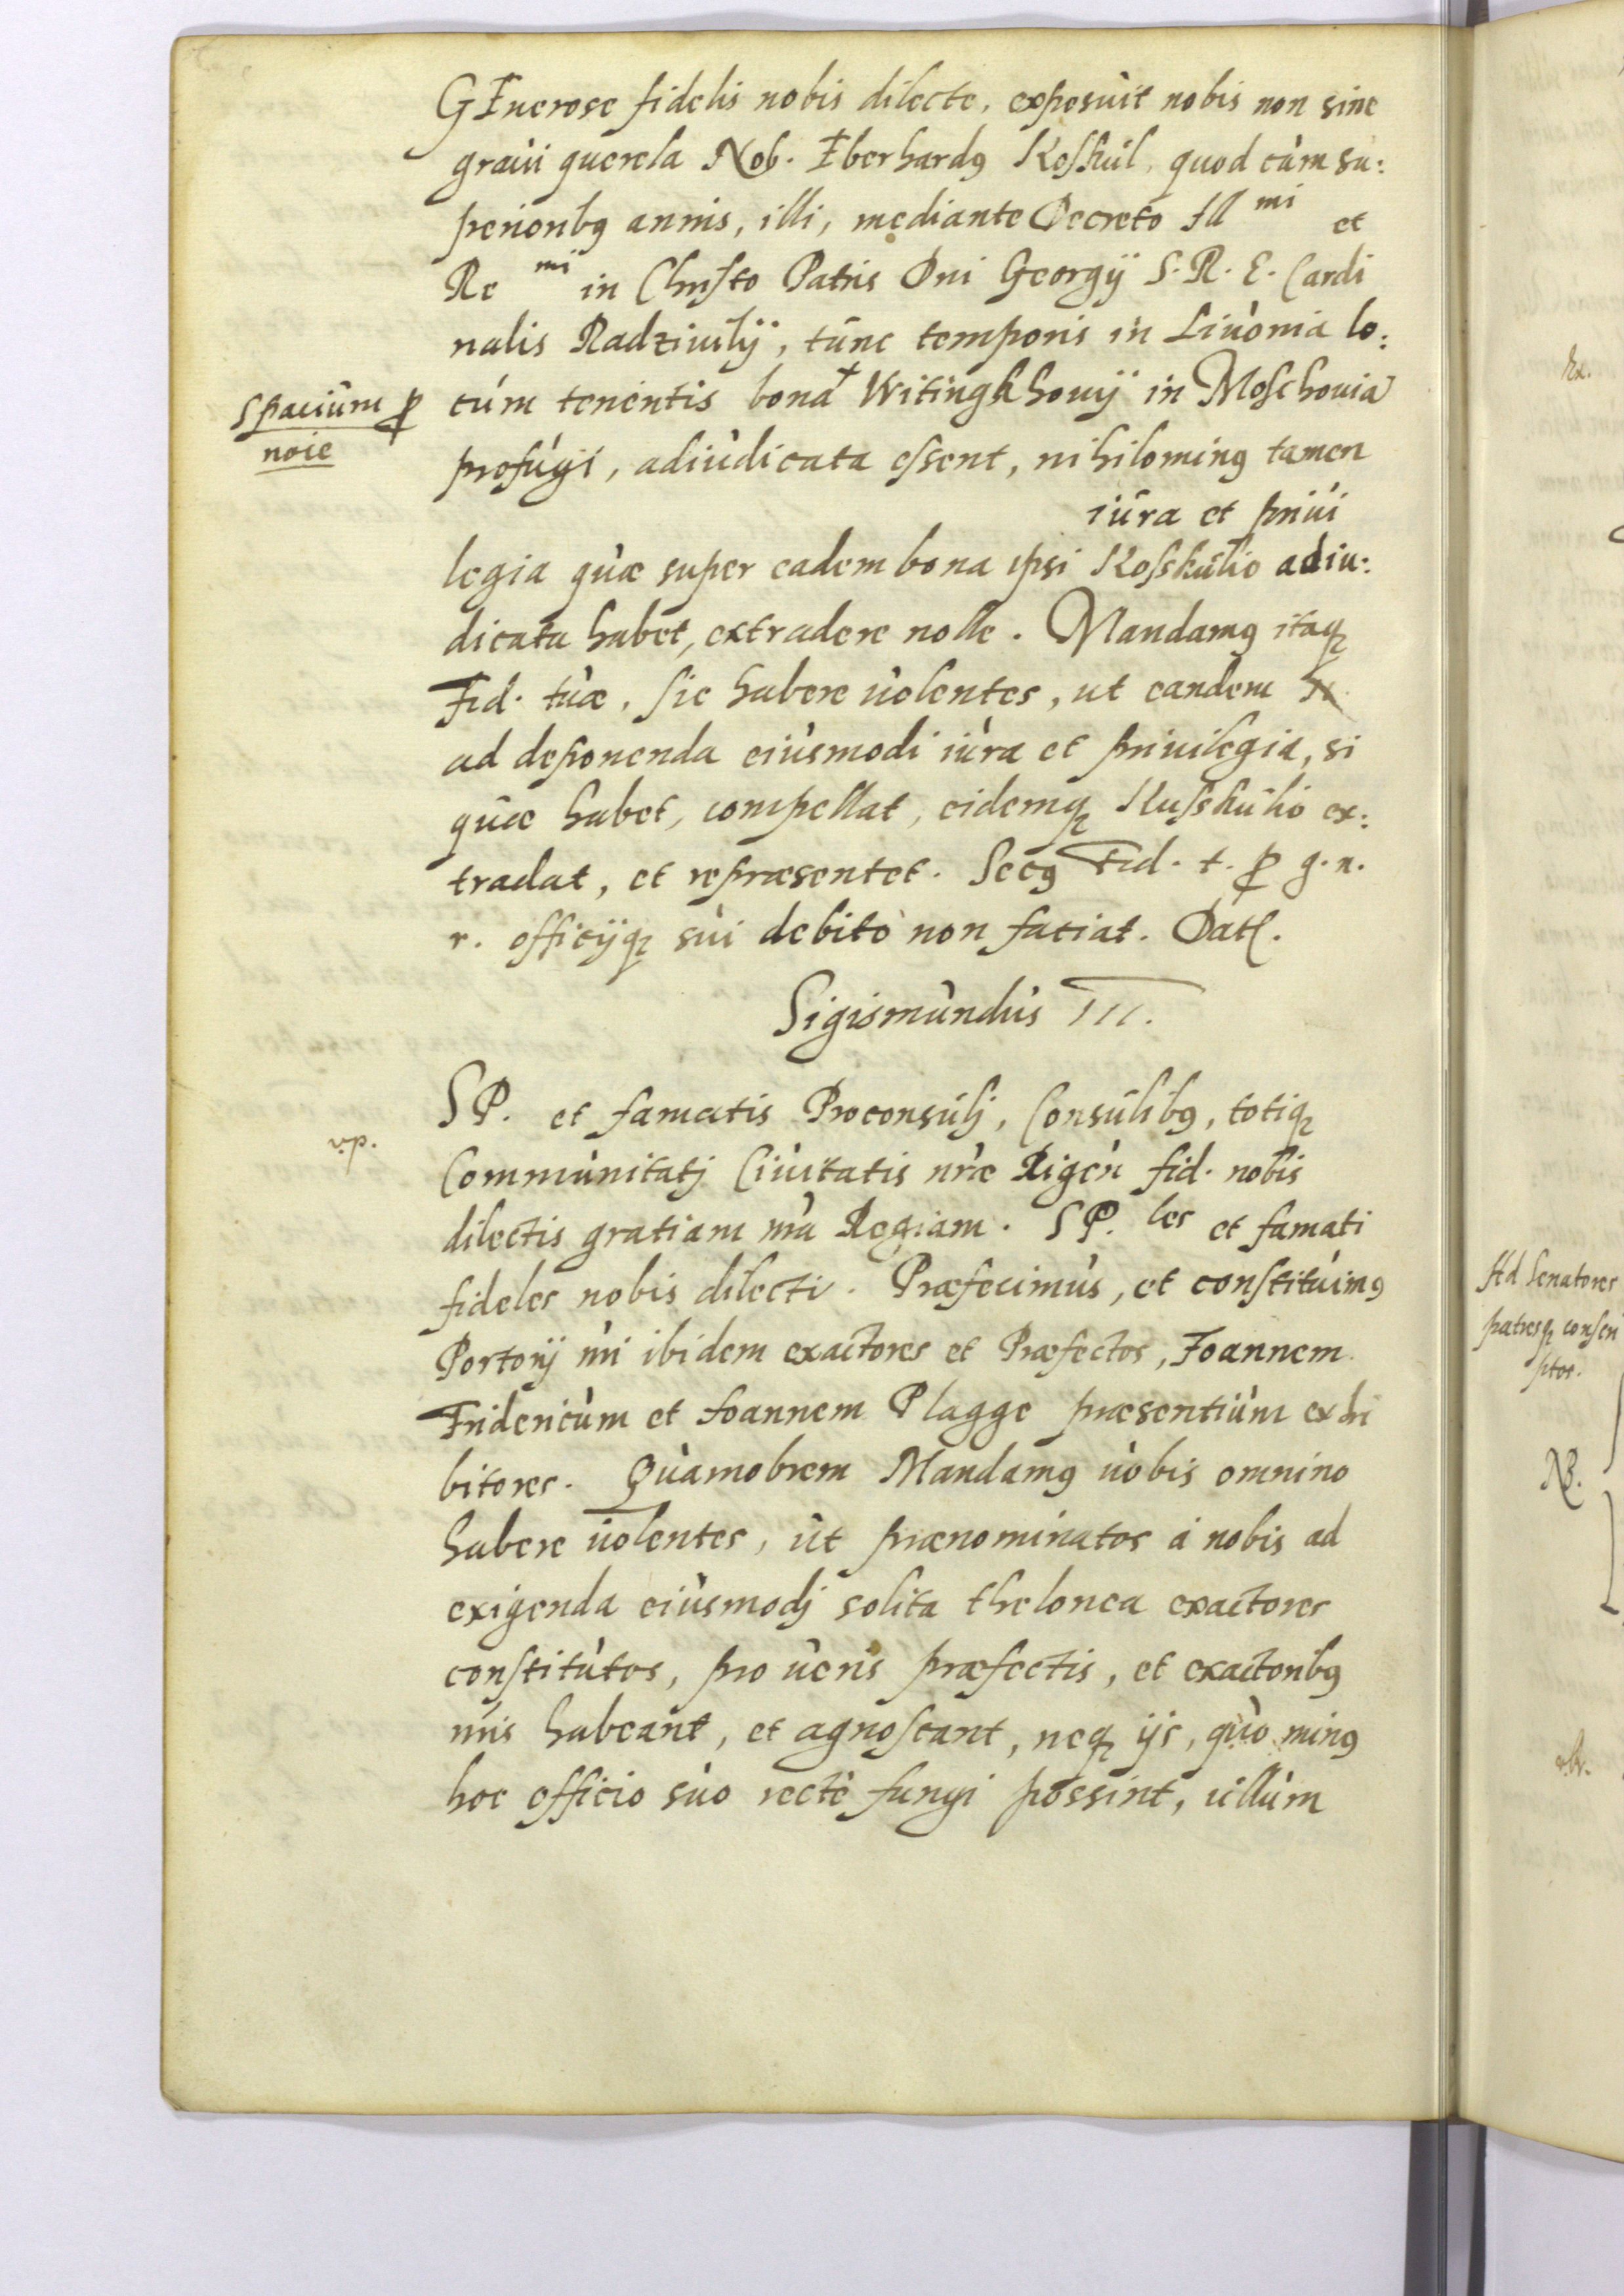 GEnerose fidelis nobis dilecte, exposuit nobis non sine
graui querela Nob. Eberhardꝰ Koskul, quod cùm su:
perioribꝰ annis, illi, mediante Decreto Ill mi et
Re mi in Christo Patris Dni Georgij S. R. E. Cardi
nalis Radziuilij, tùnc temporis in Liùonia lo:
spacium ꝑ
noie
cùm tenentis bona† Witingkhouij in Moschouia
profùgi, adiùdicata essent, nihilominꝰ tamen
iùra et priui
legia quæ super eadem bona ipsi Kosskulio adiu:
dicata habet, extradere nolle. Mandamꝰ itaqꝫ
Fid. tùæ, sic habere ùolentes, ut eandem
ad deponenda eiùsmodi iùra et priuilegia, si
quæ habet, compellat, eidemqꝫ Kusskulio ex:
tradat, et repræsentet. Secꝰ Fid. t. ꝑ g. n.
r. officijqꝫ sùi debito non faciat. Datꝭ.
Sigismùndùs III.
SP. et famatis Proconsulj, Consùlibꝰ, totiqꝫ
v.p.
Commùnitatj Ciùitatis nr̃æ Rigen̄ fid. nobis
dilectis gratiam nr̃a Regiam. SP. les et famati
fideles nobis dilecti. Præfecimùs, et constitùimꝰ
Portorij nr̃i ibidem exactores et Præfectos, Joannem
Fridericùm et Joannem Plagge præsentiùm exhi
bitores. Qùamobrem Mandamꝰ ùobis omnino
habere ùolentes, ùt prænominatos à nobis ad
exigenda eiùsmodj solita thelonea exactores
constitùtos, pro ùeris præfectis, et exactoribꝰ
nr̃is habeant, et agnoscant, neqꝫ ijs, qùo minꝰ
hoc officio sùo rectè fungi possint, ùllùm
Ad Senatores
patresqꝫ conscri
ptos.
NB.